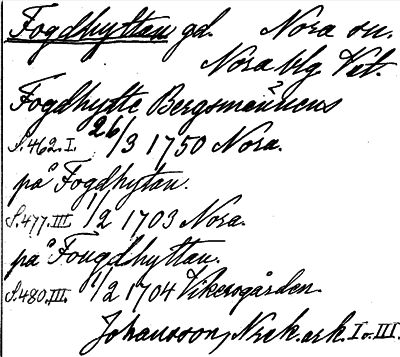 Fogdhyttan gd. Nora sn.
Nora blg Vst.
Fogdhytte Bergsmännens
S. 462. I. 26/3 1750 Nora.
på Fogdhytan.
S. 477. III 1/2 1703 Nora.
på Fougdhyttan.
S. 480. III. 1/2 1704 Vikersgården
Johansson, Nrak. ark. I o. III.